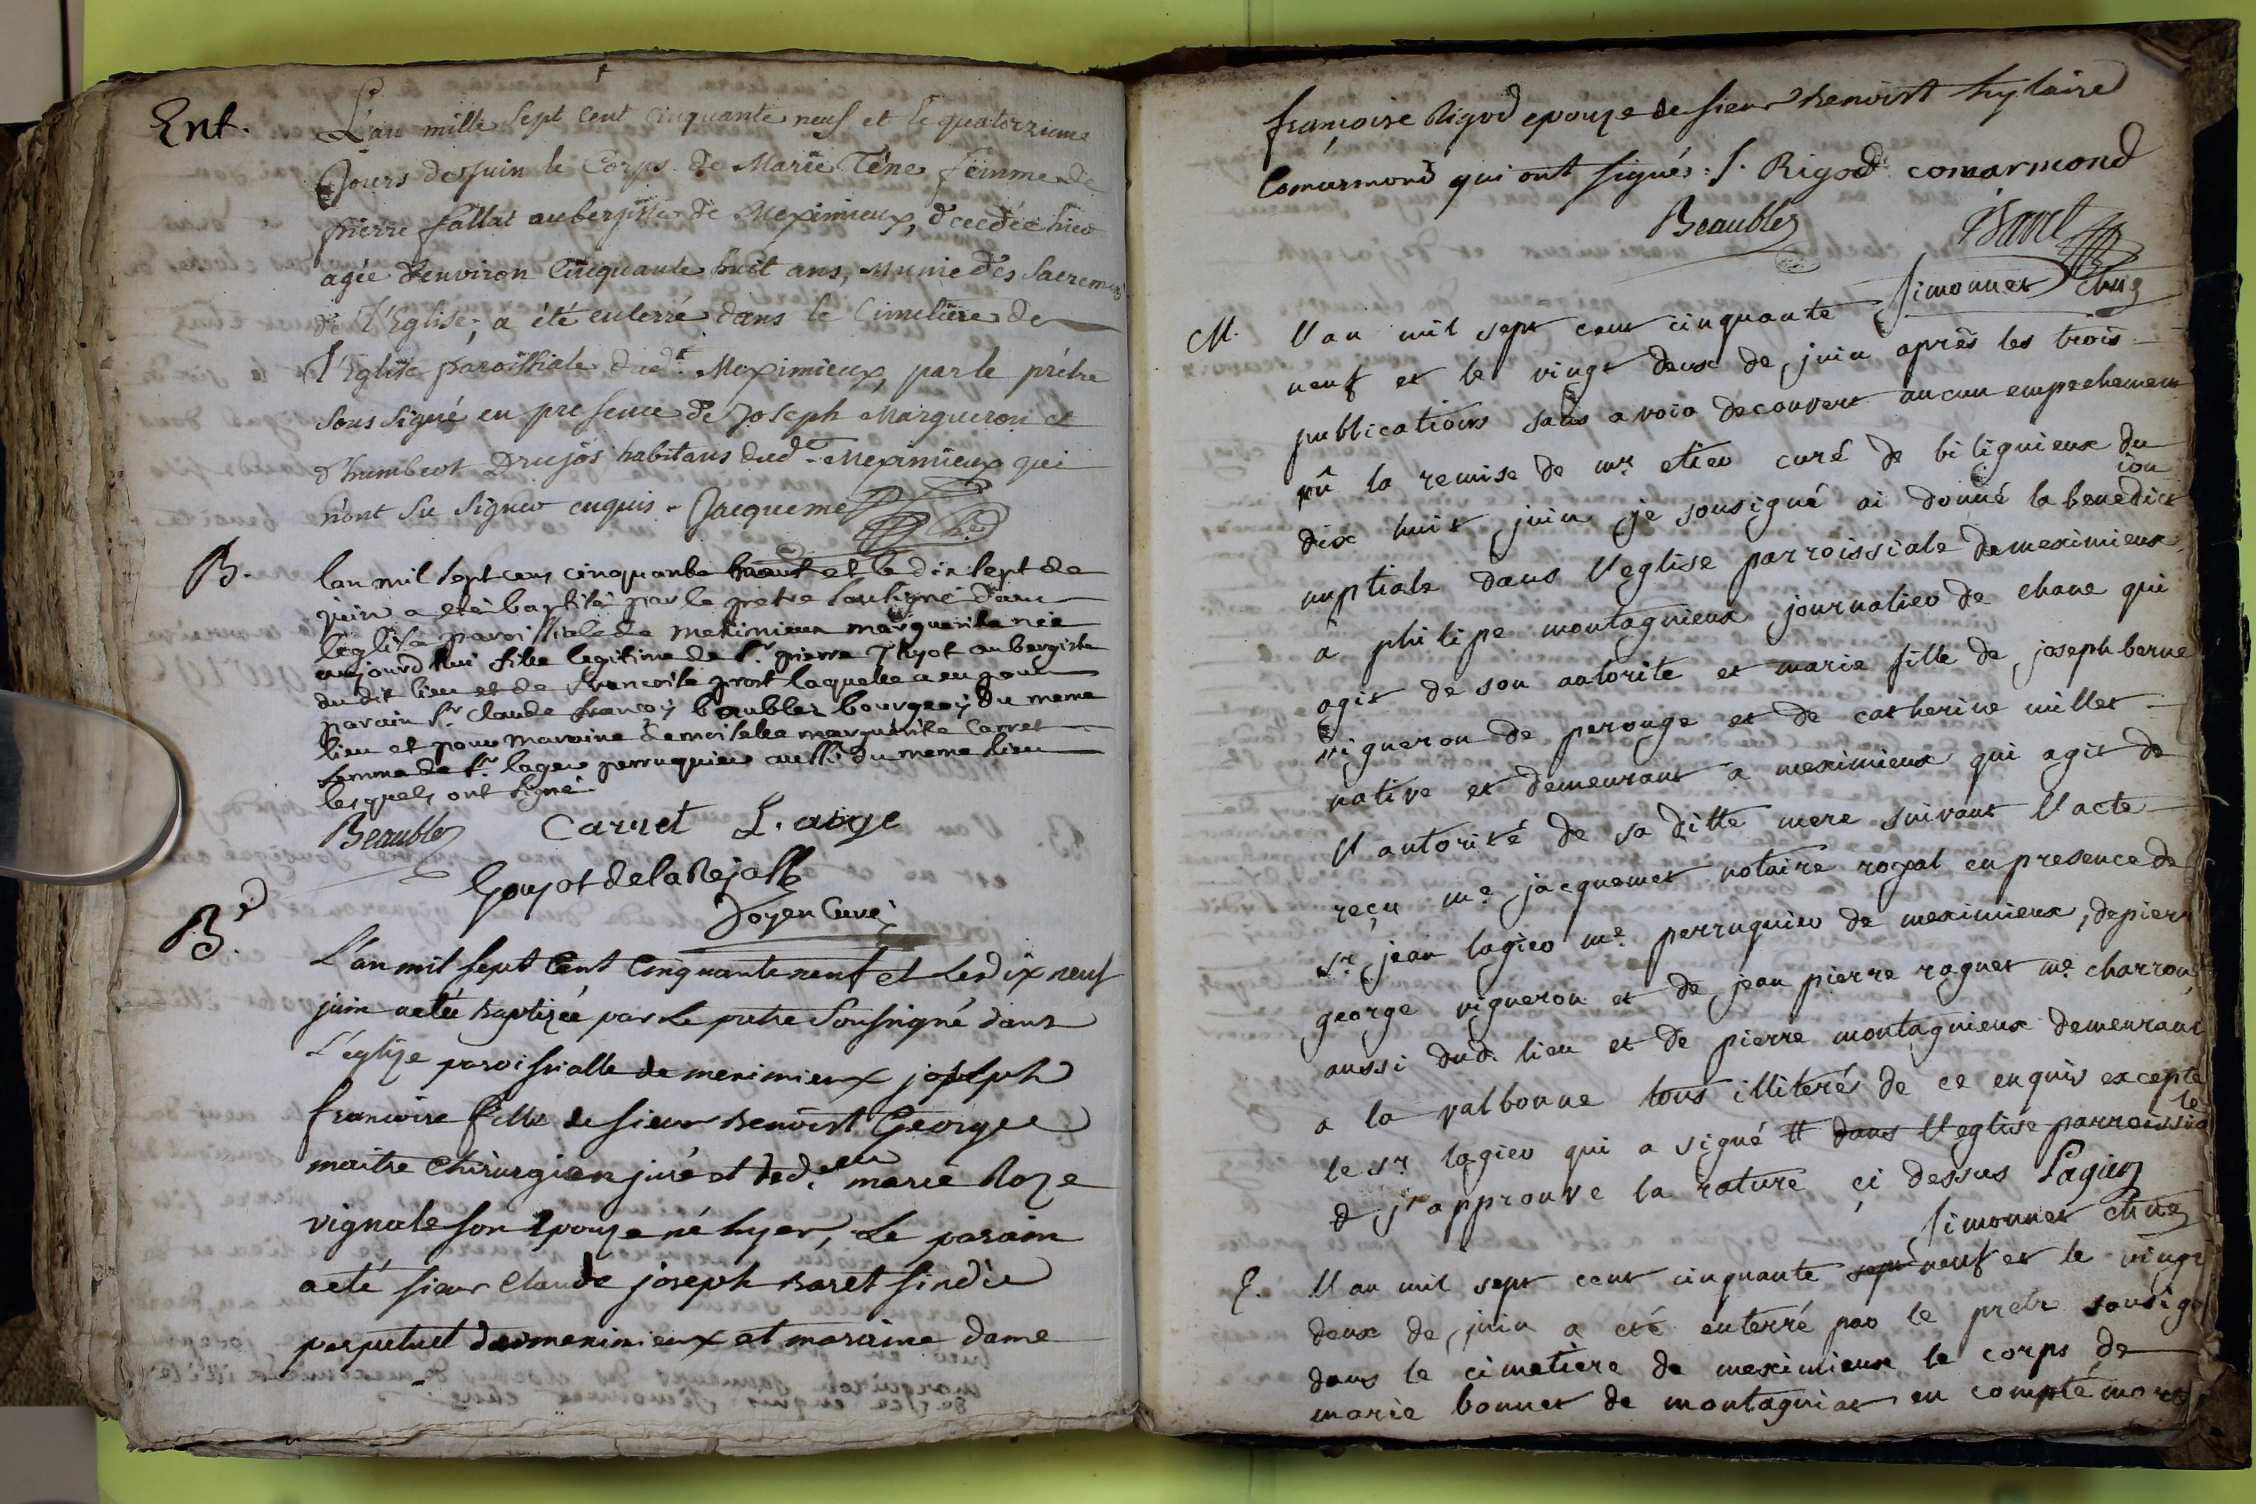 Ent.
L'an mille sept cent cinquante neuf et le quatorzieme
Jours de Juin le Corps de Marie Téne femme de
pierre fallat aubergiste de Meximieux, décédée hier
agée d'environ Cinquante huit ans, munie des Sacremens
de l'Eglise, a été enterré dans le Cimetiere de
l'Eglise paroissiale dud.t Meximieux, par le prêtre
sous signé en presence de Joseph Margueron et
d'humbert Drujos habitans dud.t Meximieux qui
n'ont su signer enquis. Jacquemet
B.
lan mil sept cens cinquante neuf et le dix sept de
juin a eté baptisé par le pretre soussigné dans
leglise paroissiale de meximieux marguerite née
aujourd'hui fille legitime de Sr. pierre aubergiste
du dit lieu et de francoise prost laquelle a eu pour
parain Sr. Claude francois beaublez bourgeois du meme
lieu et pour maraine demoiselle marguerite Carret
femme de Sr. lager perruquier aussi du meme lieu
lesquels ont signé.
Beaublez Carret L. aige
Goujot de la Rejasse
Doyen Curé
B.
L'an mil sept Cent Cinquante neuf et Le dix neuf
juin aetée Baptizée par Le pretre Sousigné dans
L'eglize paroissialle de meximieux joseph
francoise fille de sieur Benoist George
maitre Chirurgien juré et de d.elle marie Roze
vignole son Epouze né hyer, Le parain
aeté sieur Claude joseph Baret sindic
perpetuel de meximieux et maraine dame
françoise Rigod epouze de sieur Benoist hylaire
Comarmond qui ont signés: f. Rigod comarmond
Beaublez Baret
Simonnet Chne
M.
l'an mil sept cent cinquante
neuf et le vingt deux de juin après les trois
publications sans avoir decouvert aucun empechement
vû la remise de mr. etieu curé de biligneux du
dix huit juin je sousigné ai donné la benedict
ion
nuptiale dans l'eglise parroissiale de meximieux
a philipe montagnieux journalier de chane qui
agit de son autorite et marie fille de joseph berne
vigneron de perouge et de catherine millet
native et demeurant a meximieux qui agit de
l'autorité de sa ditte mere suivant l'acte
reçu me. jacquemet notaire royal en presence de
sr. jean lagier me. perruquier de meximieux, de pierre
george vigneron et de jean pierre raguet me. charron
aussi dud. lieu et de pierre montagnieux demeurant
a la valbonne tous illiterés de ce enquis excepté
le sr. lagier qui a signé # dans l'eglise parroissia
le
# j'approuve la rature ci dessus Lagier
Simonnet Chne
E.
l'an mil sept cent cinquante sept neuf et le vingt
deux de juin a été enterré par le pretre sousigné
dans le cimetiere de meximieux le corps de
marie bonnet de montagniat en compté morte